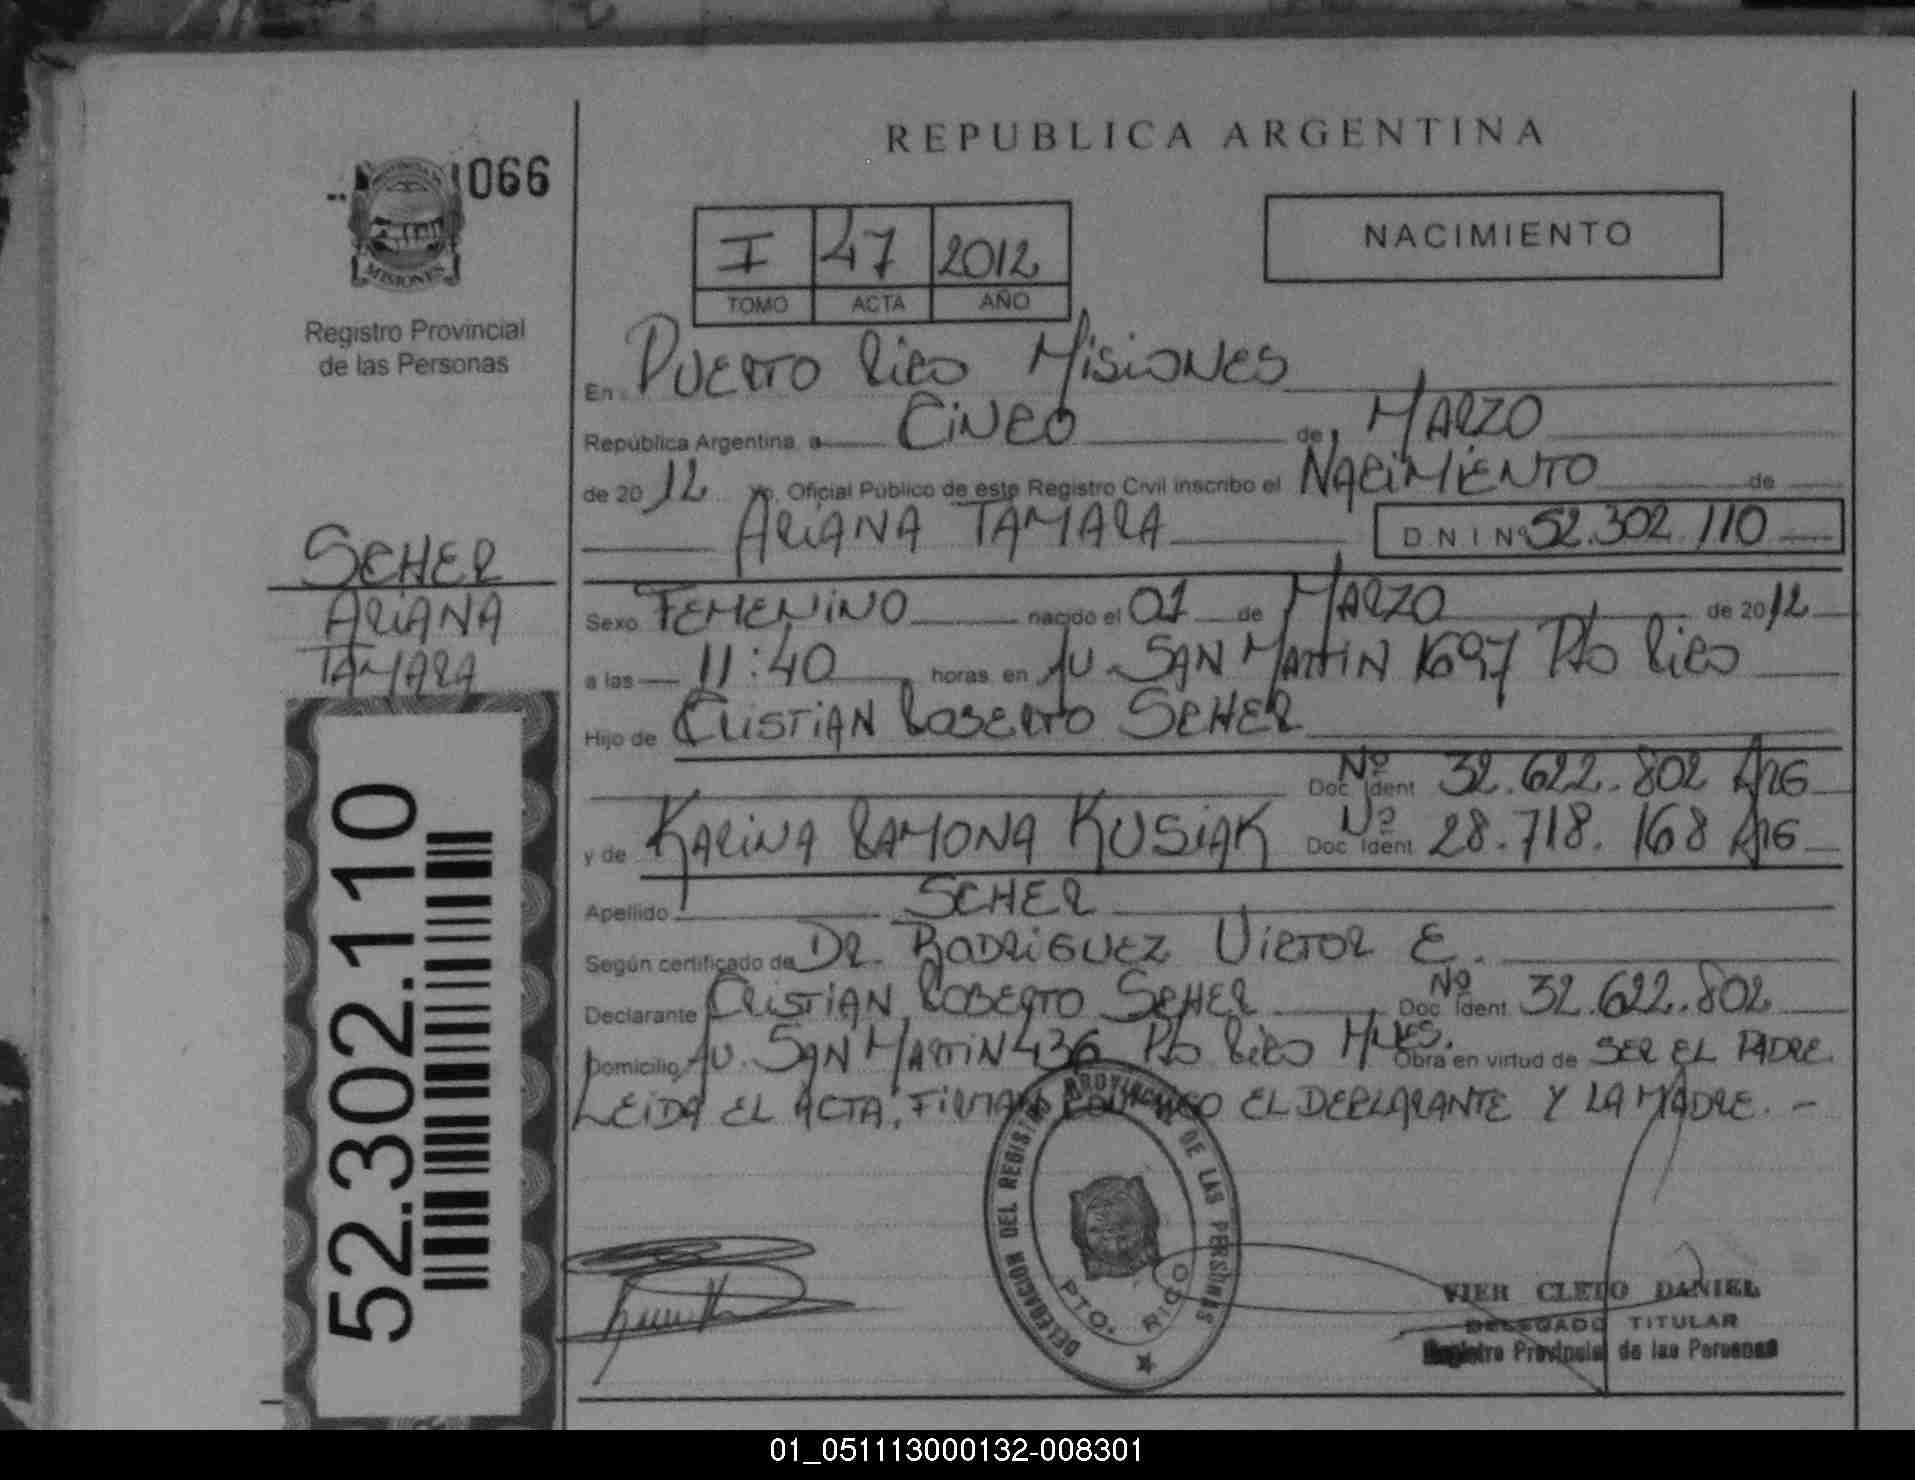 066
MISIONES
Registro Provincial
de las Personas
SCHER
ARIANA
TAMARA
52.302.110
REPUBLICA ARGENTINA
I 47 2012
TOMO ACTA AÑO
NACIMIENTO
En PUERTO RICO MISIONES
República Argentina, a CINCO de MARZO
de 2012 Yo, Oficial Público de este Registro Civil inscribo el NACIMIENTO de
ARIANA TAMARA DNI Nº 52.302.110
Sexo FEMENINO nacido el 01 de MARZO de 2012
a las 11:40 horas en AV. SAN MARTIN 1697 Pto RICO
Hijo de CRISTIAN ROBERTO SCHER
Doc Ident Nº 32.622.802 ARG
y de KARINA RAMONA KUSIAK Doc Ident Nº 28.718.168 ARG
Apellido SCHER
Según certificado de DR. RODRIGUEZ VICTOR E.
Declarante CRISTIAN ROBERTO SCHER Doc Ident Nº 32.622.802
Domicilio AV. SAN MARTIN 436 Pto RICO MNES. Obra en virtud de SER EL PADRE.
LEIDA EL ACTA, FIRMAN CONMIGO EL DECLARANTE Y LA MADRE. -
DELEGACION DEL REGISTRO PROVINCIAL DE LAS PERSONAS
PTO. RICO
VIER CLETO DANIEL
DELEGADO TITULAR
Registro Provincial de las Personas
01_051113000132-008301